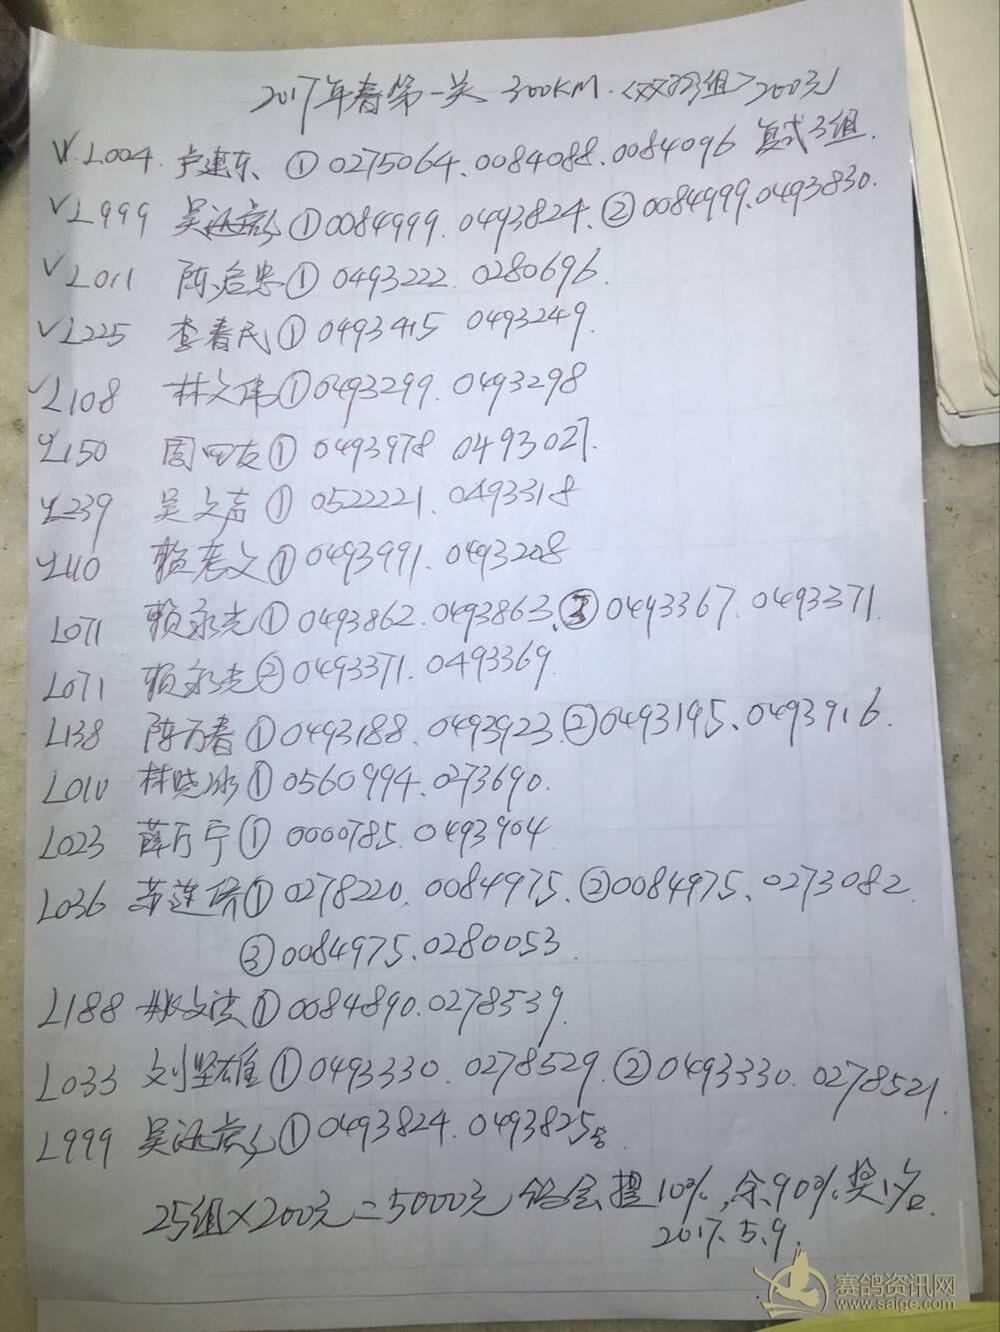 2017年春第一关 300KM.<双鸽组>200元
V.L004. 卢建东 ① 0275064.0084088.0084096 复式3组.
√L999 吴 ① 0084999. 0493824. ② 0084999.0493830.
√L011 陈启忠 ① 0493222. 0280696.
√L225 李春民 ① 0493415 0493249.
√L108 林文伟 ① 0493299. 0493298
√L150 周四友 ① 0493978 0493027.
√L239 吴文声 ① 0522221. 0493318
√L110 赖老义 ① 0493991. 0493208
L071 赖永光 ① 0493862. 0493863. ③ 0493367. 0493371.
L071 赖永光 ② 0493371. 0493369.
L138 陈万春 ① 0493188. 0493923. ② 0493195. 0493916.
L010 林晓冰 ① 0560994. 0273690.
L023 薛万宁 ① 0000785. 0493904
L036 苏莲 ① 0278220. 0084975. ② 0084975. 0273082.
③ 0084975. 0280053
L188 文法 ① 0084890. 0278539.
L033 刘坚雄 ① 0493330. 0278529. ② 0493330. 0278521.
L999 吴 ① 0493824. 0493825
25组×200元=5000元 鸽会提10%,余90%奖1名.
2017.5.9.
赛鸽资讯网
www.saige.com